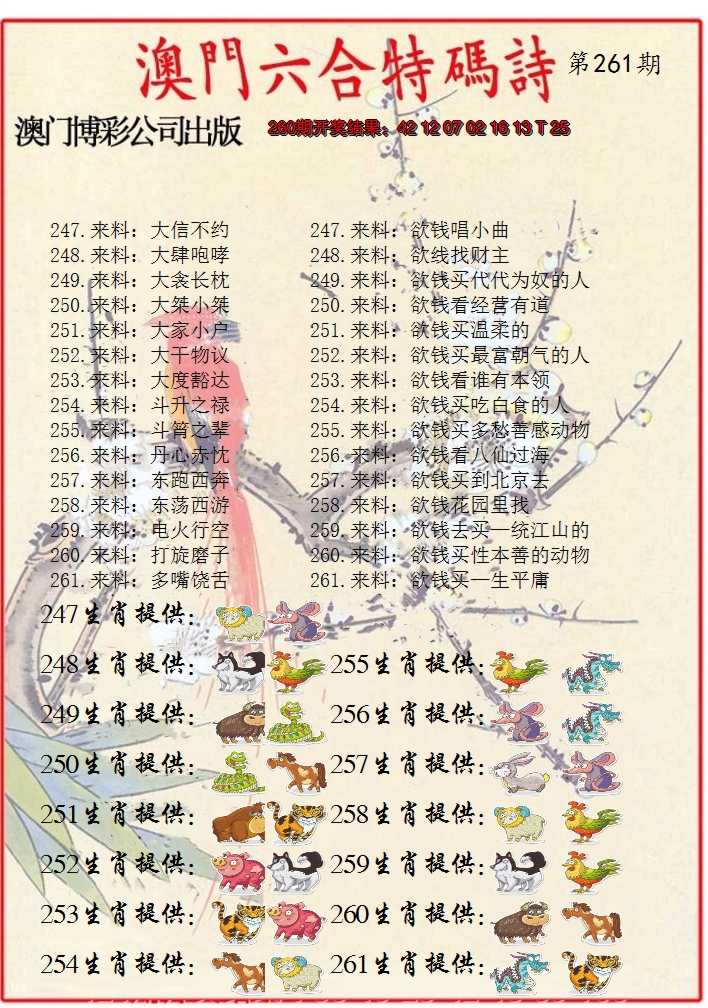 澳門六合特碼詩 第261期
澳门博彩公司出版 260期开奖结果：42 12 07 02 16 13 T 25
247.来料：大信不约 247.来料：欲钱唱小曲
248.来料：大肆咆哮 248.来料：欲线找财主
249.来料：大衾长枕 249.来料：欲钱买代代为奴的人
250.来料：大桀小桀 250.来料：欲钱看经营有道
251.来料：大家小户 251.来料：欲钱买温柔的
252.来料：大干物议 252.来料：欲钱买最富朝气的人
253.来料：大度豁达 253.来料：欲钱看谁有本领
254.来料：斗升之禄 254.来料：欲钱买吃白食的人
255.来料：斗筲之辈 255.来料：欲钱买多愁善感动物
256.来料：丹心赤忱 256.来料：欲钱看八仙过海
257.来料：东跑西奔 257.来料：欲钱买到北京去
258.来料：东荡西游 258.来料：欲钱花园里找
259.来料：电火行空 259.来料：欲钱去买一统江山的
260.来料：打旋磨子 260.来料：欲钱买性本善的动物
261.来料：多嘴饶舌 261.来料：欲钱买一生平庸
247生肖提供：
248生肖提供： 255生肖提供：
249生肖提供： 256生肖提供：
250生肖提供： 257生肖提供：
251生肖提供： 258生肖提供：
252生肖提供： 259生肖提供：
253生肖提供： 260生肖提供：
254生肖提供： 261生肖提供：